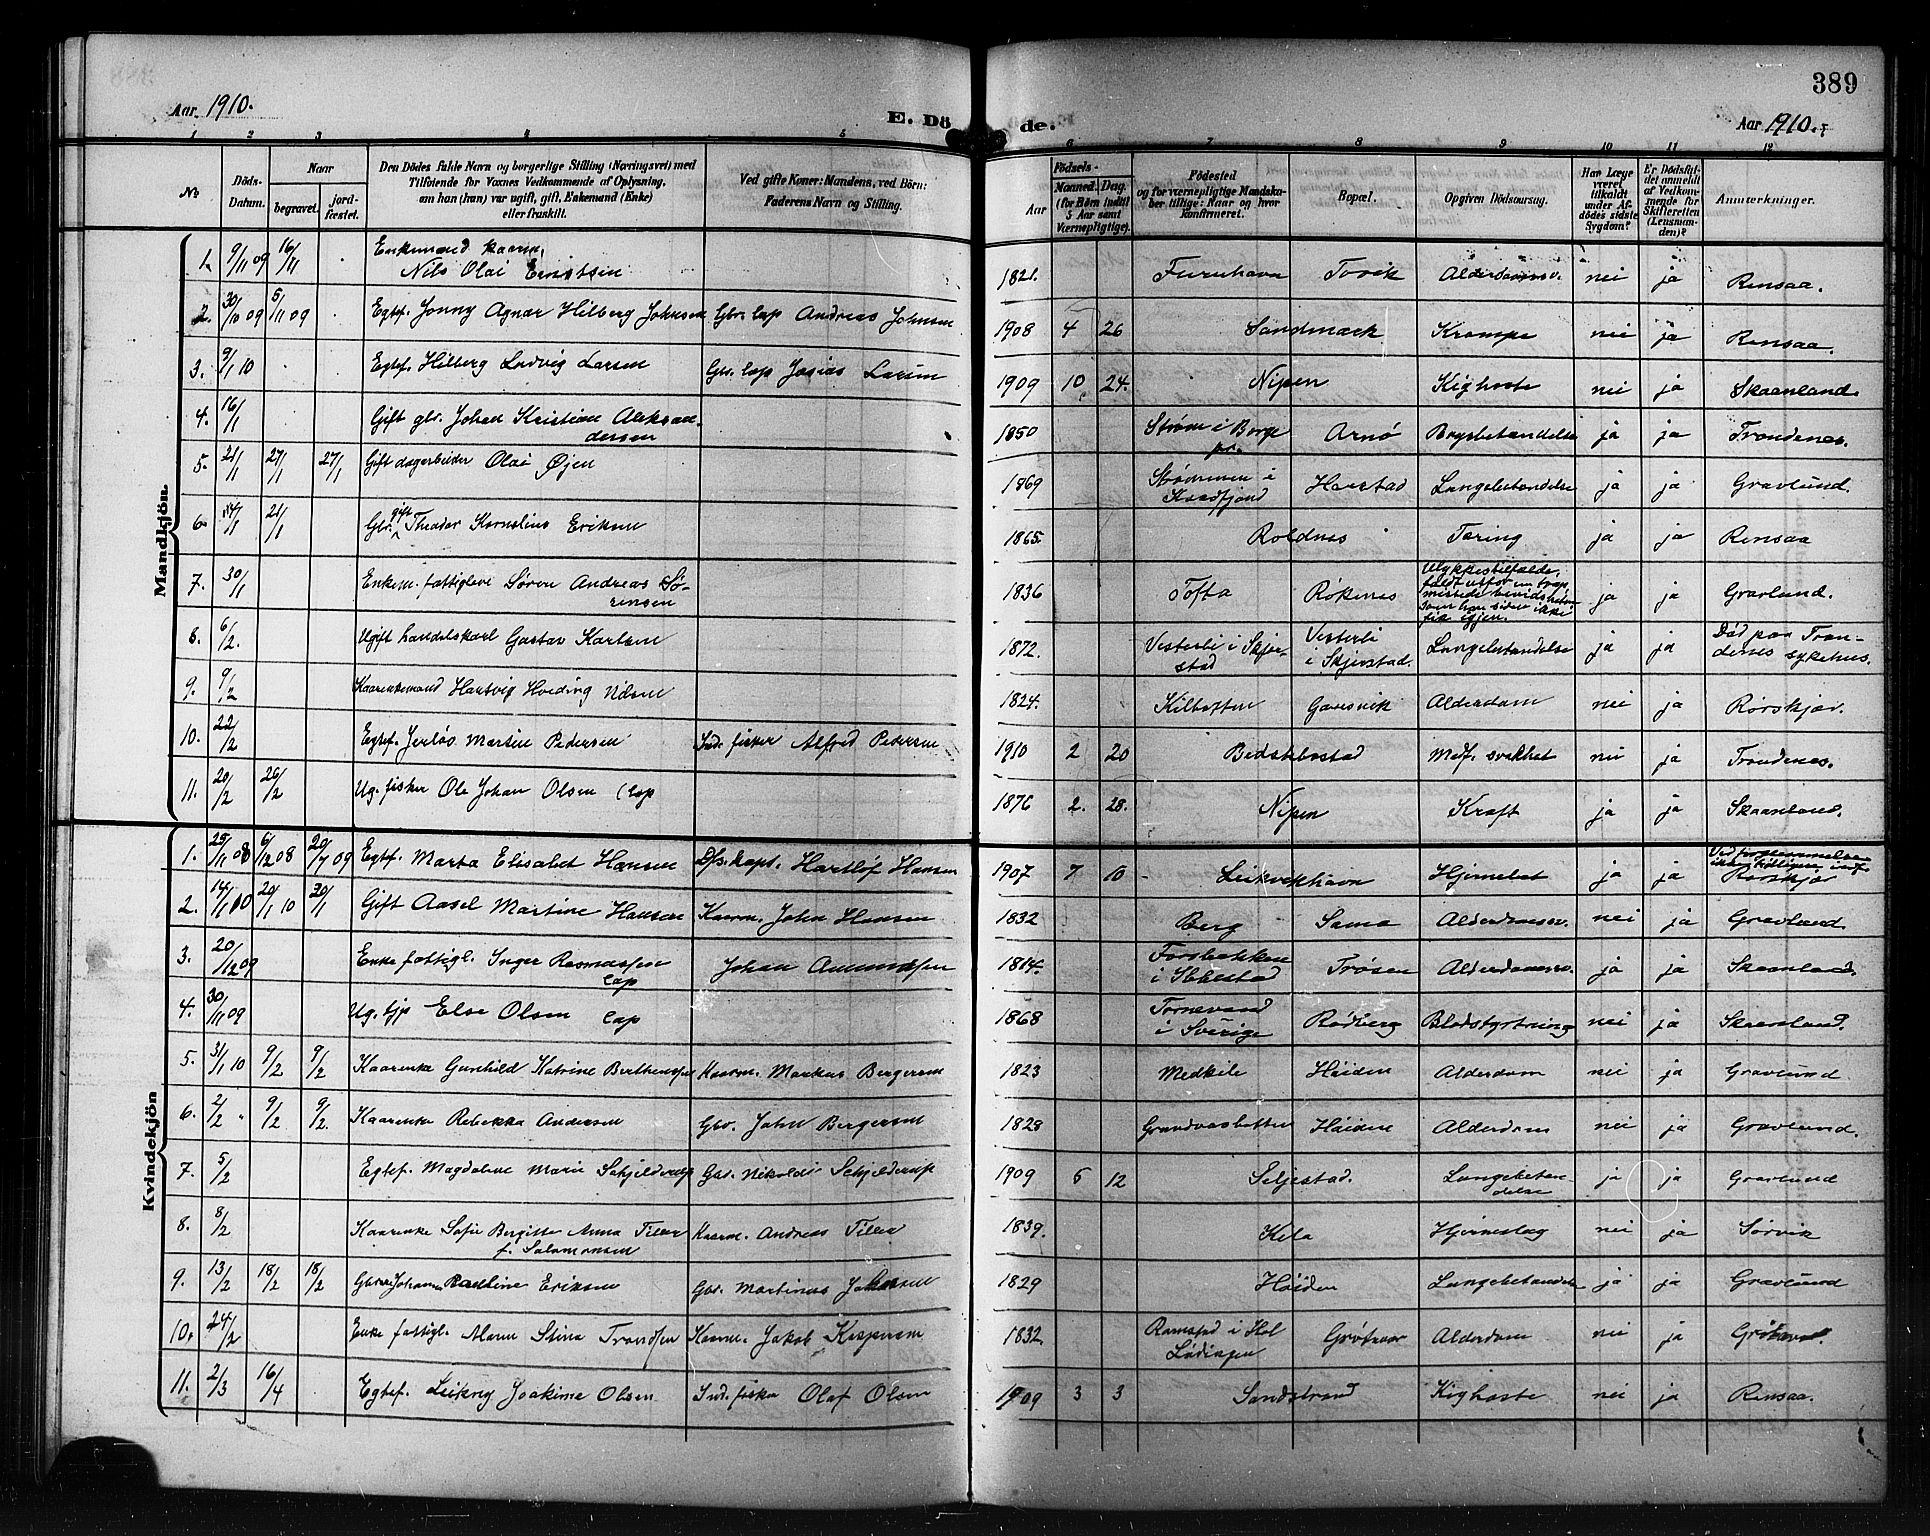 389
Aar 1910.
E. Dö
de.
Aar 1910.
1 2 3 4 5
6 7 8 9 10 11 12
No
Döds-
Datum.
Naar
begravet.
jord-
fæstet.
Den Dödes fulde Navn og borgerlige Stilling (Næringsvei) med
Tilföiende for Voxnes Vedkommende af Oplysning,
om han (hun) var ugift, gift, Enkemand (Enke)
eller fraskilt.
Ved gifte Koner: Mandens, ved Börn:
Faderens Navn og Stilling.
Födsels-
Aar
Maaned. Dag.
(for Börn indtil
5 Aar samt
Værnepligtige).
Födested
og for værnepligtige Mandska-
ber tillige: Naar og hvor
konfirmeret.
Bopæl.
Opgiven Dödsaarsag.
Har Læge
været
tilkaldt
under Af-
dödes sidste
Sygdom?
Er Dödsfal-
det anmeldt
af Vedkom-
mende for
Skifteretten
(Lensman-
den)?
Anmærkninger.
Mandkjön.
1. 9/11 09 16/11 Enkemand kaarm. Nils Olai Erntsen 1821. Furuhavn Tovik nei ja Rensaa.
2. 30/10 09 5/11 09 Egtef. Jonny Agnar Hilberg Johnsen Gbr. lap Andreas Johnsen 1908 4 26 Sandmark Krampe nei ja Rensaa.
3. 9/1 10 Egtef. Hilberg Ludvig Larsen Gbr. lap Josias Larsen 1909 10 24. Nipen Kighoste nei ja Skaanland.
4. 16/1 Gift gbr. Johan Kristian Aleksan-
dersen 1850 Strøm i Borge pr. Arnö Brystbetændelse ja ja Trondenes.
5. 21/1 27/1 27/1 Gift dagarbeider Olai Øien 1869 Strømmen i Kvædfjord Harstad Lungebetændelse ja ja Gravlund.
6. 14/1 21/1 Gbr. gift Theodor Kornelius Eriksen 1865. Roldnes Tæring ja ja Rensaa
7. 30/1 Enkem. fattiglem Søren Andreas Sø-
rensen 1836 Tofta Røkenes Ulykkestilfælde, faldt utfor en trap missede bevidstheten som han siden ikke fik igjen. ja ja Gravlund.
8. 6/2. Ugift handelskarl Gustav Karlsen 1872. Vesterli i Skjer-
stad Vesterli i Skjerstad. Lungebetændelse ja ja Död paa Tron-
denes sykehus.
9. 9/2 Kaarenkemand Hartvig Hveding Nilsen 1824. Kilbotten Gausvik Alderdom nei ja Rørskjær.
10. 22/2 Egtef. Jerløv Martin Pedersen Ind. fisker Alfred Pedersen 1910 2 20 Medf. svakhet nei ja Trondenes.
11. 20/2 26/2 Ug. fisker Ole Johan Olsen (lap 1876 2. 28. Nipen Kræft ja ja Skaanland.
Kvindekjön
1. 25/11 08 6/12 08 20/7 09 Egtef. Marta Elisabet Hansen Dfs.kapt. Hartløf Hansen 1907 7 10 Leikvikhavn Hjernebet ja ja Rørskjær
2. 14/1 10 20/1 10 20/1 Gift Aasel Martine Hansen Kaarm. John Hansen 1832 Berg Sama nei ja Gravlund.
3. 20/12 09 Enke fattigl. Inger Rasmussen lap Johan Amundsen 1814. Forsbakken i Ibbestad Trøsen ja ja Skaanland.
4. 30/11 09 Ug. tjp Else Olsen lap 1868 Tornevand i Sverige Rødberg Blodstyrtning nei ja Skaanland.
5. 31/1 10 9/2 9/2 Kaarenke Gunhild Katrine Bertheussen Kaarm. Markus Bergersen 1823 Medkile Høiden Alderdom nei ja Gravlund.
6. 2/2 " 9/2 9/2. Kaarenke Rebekka Andersen Gbr. John Bergersen 1823 Grandvasbotten Høiden Alderdom nei ja Gravlund.
7. 5/2 Egtef. Magdalene Marie Schjelderup Gbr. Nikolai Schjelderup 1909 6 12 Seljestad. Lungebetæn-
delse ja ja Gravlund
8. 8/2 Kaarenke Sofie Bergitte Anna Tiller f. Salomonsen Kaarm. Andreas Tiller 1839. Kila Hjerneslag nei ja Sørvik
9. 13/2 18/2 18/2 Eriksen Gbr. Martinus 1829 Høiden Lungebetændelse ja ja Gravlund
10. 24/2 Enke fattigl. Maren Stina Trondsen Kaarm. Jakob Kaspersen 1832 Ramstad i Hol Lødingen Grøtavær Alderdom nei ja Grøtavær
11. 2/3 16/4 Egtef. Leikny Joakime Olsen Ind. fisker Olaf Olsen 1909 3 3 Sandstrand Kighoste nei ja Rensaa.